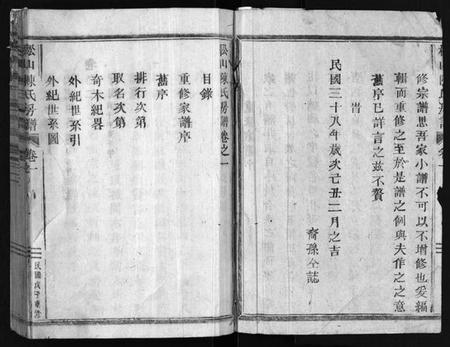 修宗譜思吾家小譜不可以不增修也爰編
輯而重修之至於是譜之例與夫作之之意
舊序已詳言之茲不贅
旹
民國三十八年歲次己丑二月之吉
裔孫仝誌
松山陳氏房譜卷之一
目錄
重修家譜序
舊序
排行次第
取名次第
奇木紀畧
外紀世系引
外紀世系圖
松山陳氏房譜
卷一
民國戊子重修